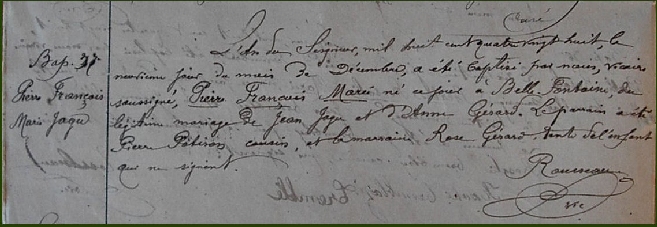 Curé
Bap. 37
Pierre François
Marie Jagu
L'An du Seigneur, mil huit cent quatre vingt huit, le
neuvième jour du mois de Décembre, a été baptisé par nous, vicaire
soussigné, Pierre François Marie né ce jour à Belle-Fontaine, du
légitime mariage de Jean Jagu et d'Anne Gérard. Le parrain a été
Pierre cousin, et la marraine Rose Gérard tante de l'enfant
qui ne signent.
Rousseau
vic